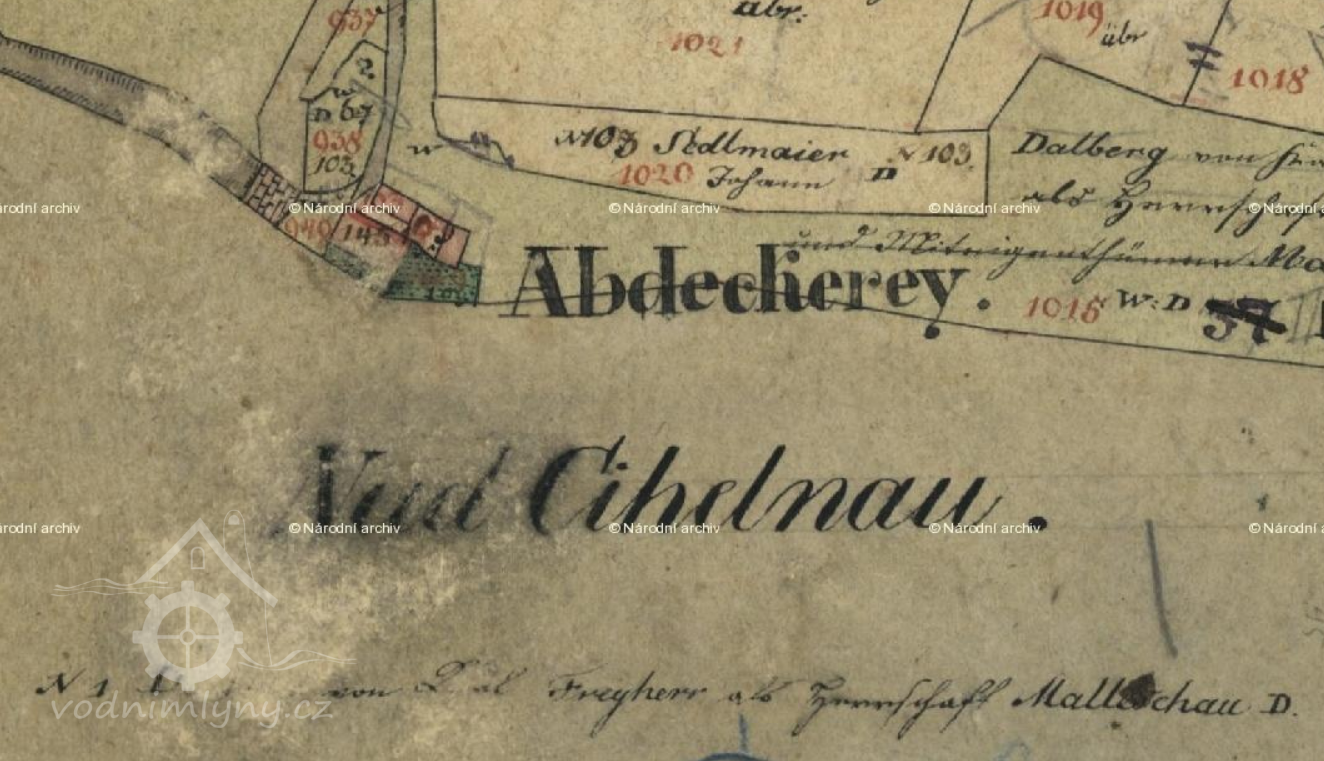 937
abr.
1021
1019
übr
1018
D 67
938
103
w
N103 Sedlmaier N 103.
1020 Johann D
Dalberg von
als Herrschaft
und Miteigenthümer
1015 W: D 37
940 145
Abdeckerey.
Nad Cihelnau.
N 1 von Freyherr als Herrschaft Malleschau D.
© Národní archiv
© Národní archiv
© Národní archiv
© Národní archiv
© Národní archiv
© Národní archiv
© Národní archiv
© Národní archiv
© Národní archiv
© Národní archiv
vodnimlyny.cz